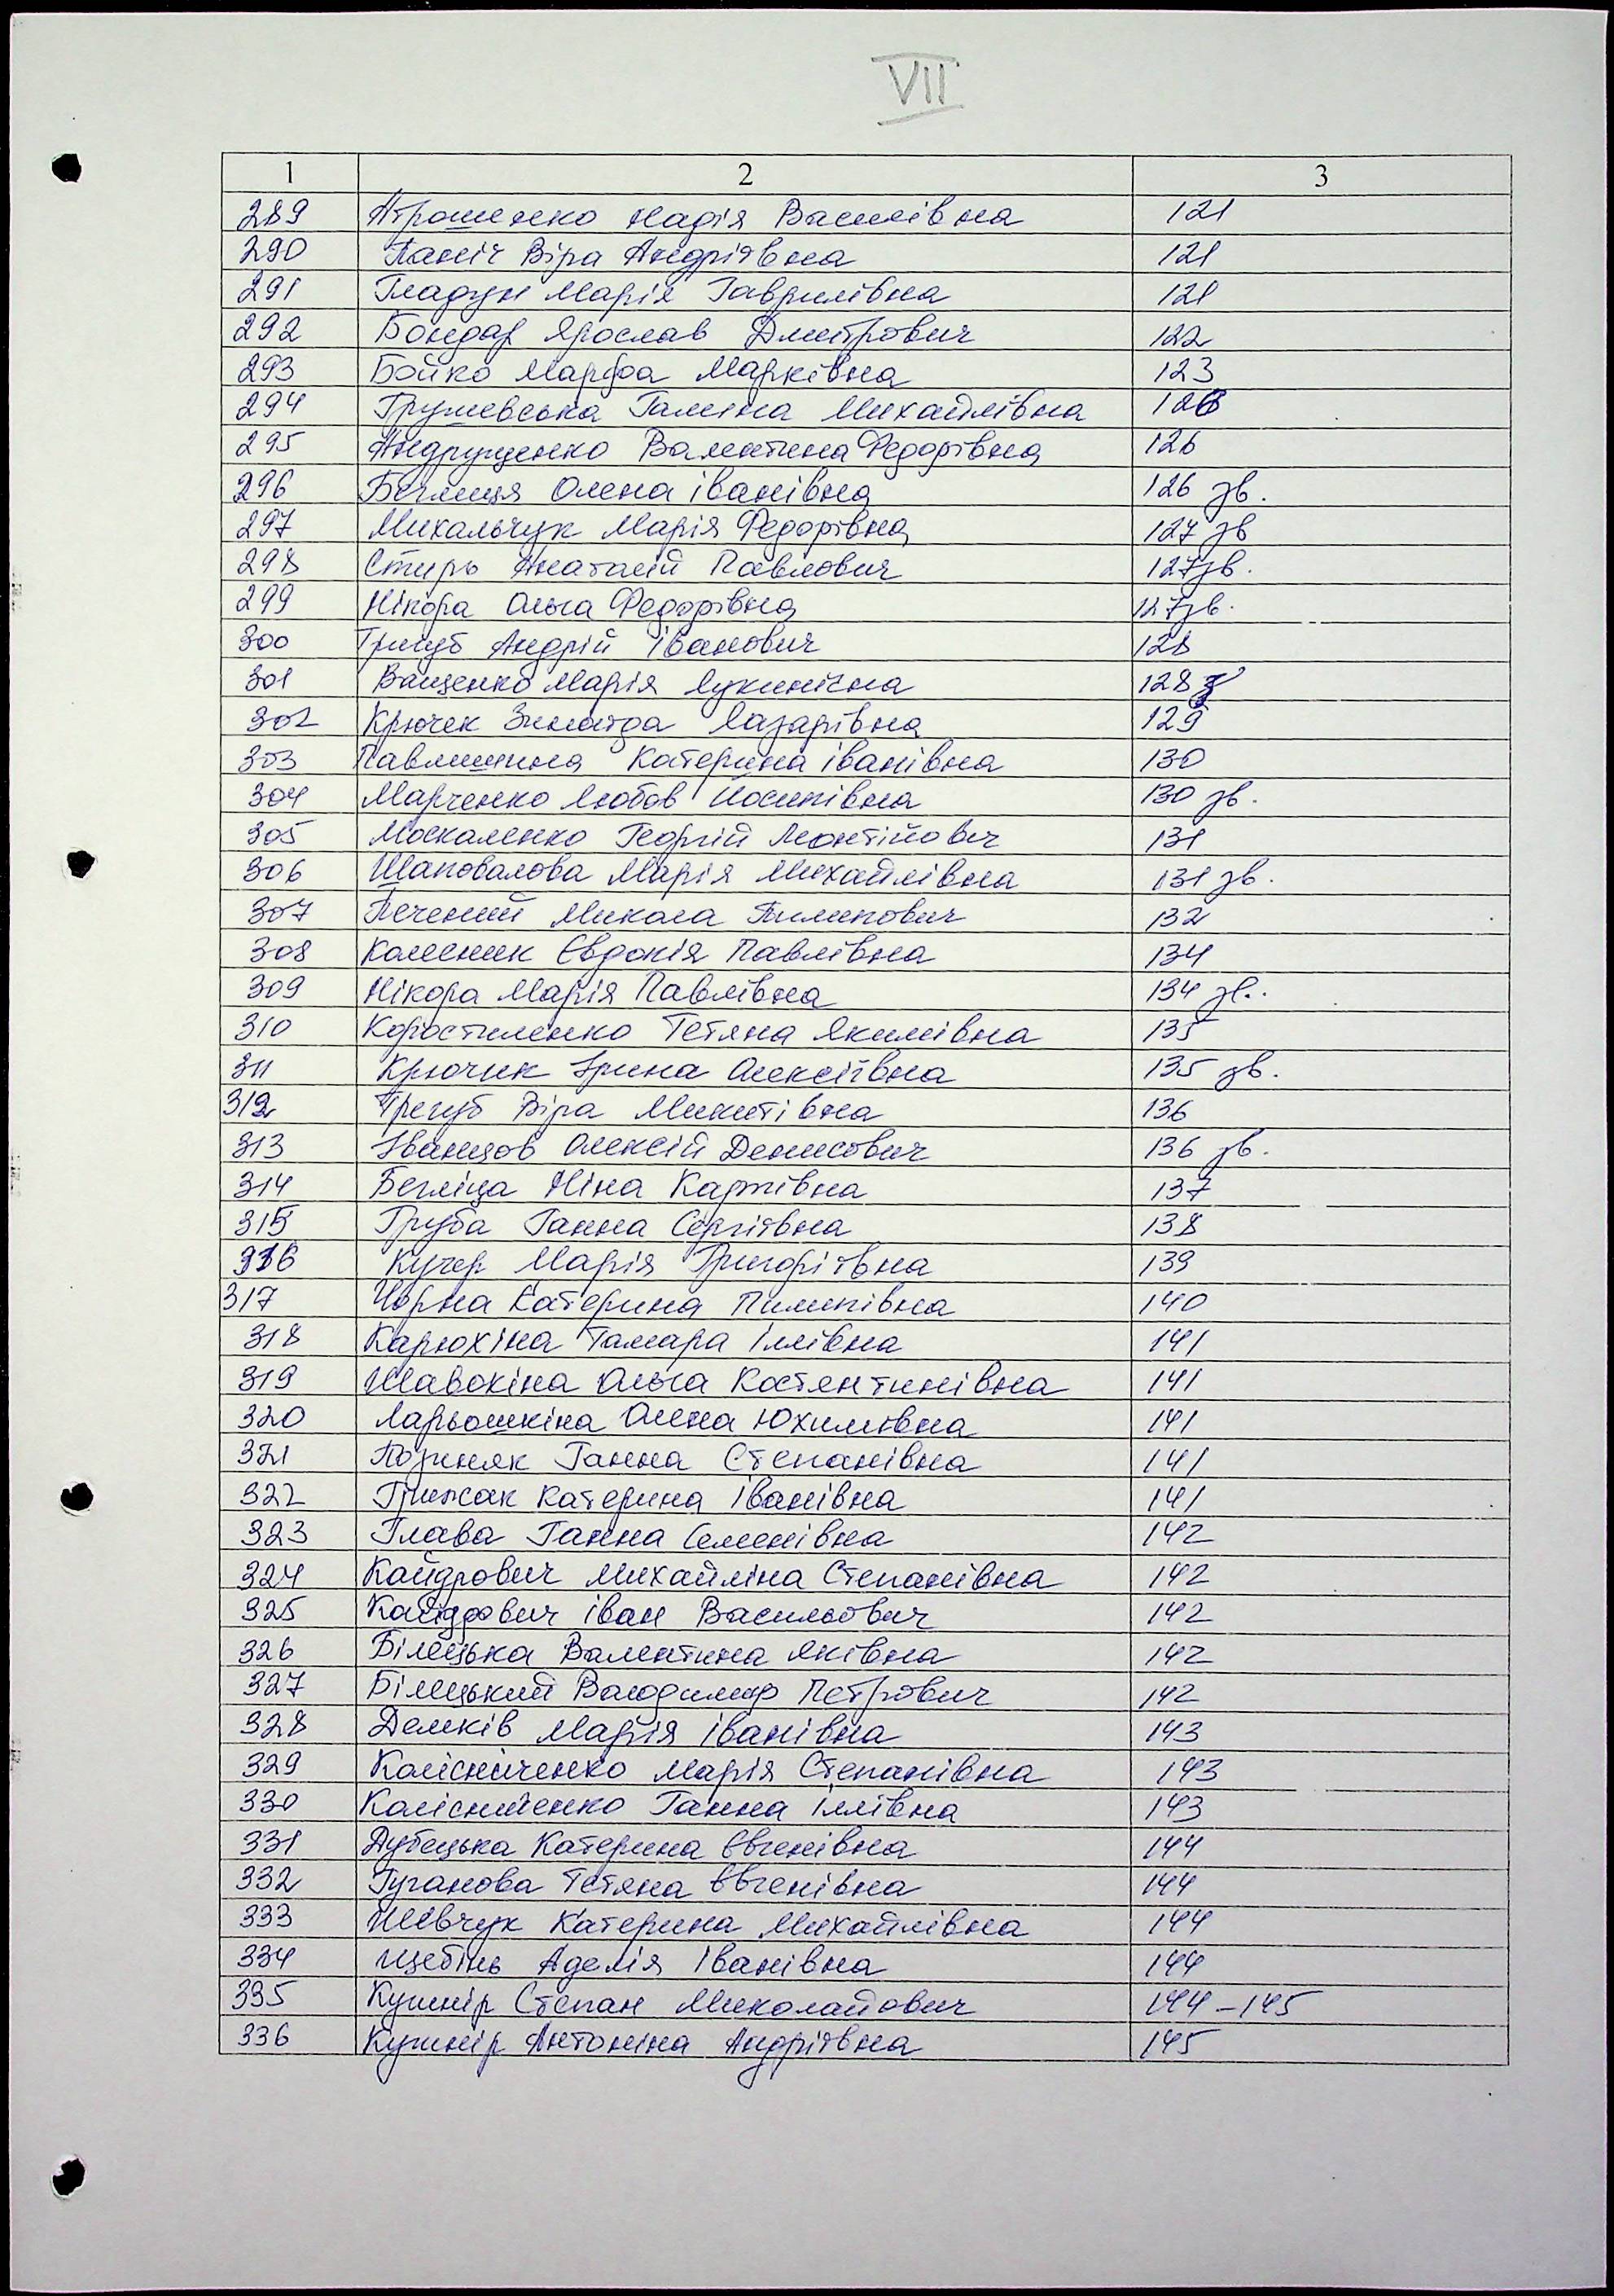 VII
1 2 3
289 Атрошенко Надія Василівна 121
290 Паніч Віра Андріївна 121
291 Гладун Марія Гаврилівна 121
292 Бондар Ярослав Дмитрович 122
293 Бойко Марфа Марківна 123
294 Грушевська Галина Михайлівна 126
295 Андрущенко Валентина Федорівна 126
296 Беглиця Олена Іванівна 126 зв.
297 Михальчук Марія Федорівна 127 зв
298 Стирь Анатолій Павлович 127зв.
299 Нікора Ольга Федорівна 127зв.
300 Тригуб Андрій Іванович 128
301 Ващенко Марія Лукинічна 128 з
302 Крючек Зинаїда Лазарівна 129
303 Павлишина Катерина Іванівна 130
304 Марченко Любов Йосипівна 130 зв.
305 Москаленко Георгій Леонтійович 131
306 Шаповалова Марія Михайлівна 131 зв.
307 Печений Микола Пилипович 132
308 Колесник Євдокія Павлівна 134
309 Нікора Марія Павлівна 134 зв.
310 Коростиленко Тетяна Якимівна 135
311 Крючик Ірина Олексіївна 135 зв.
312 Трегуб Віра Микитівна 136
313 Іванцов Олексій Денисович 136 зв.
314 Бегліца Ніна Карпівна 137
315 Груба Ганна Сергіївна 138
316 Кучер Марія Григоріївна 139
317 Чорна Катерина Пилипівна 140
318 Карюхіна Тамара Іллівна 141
319 Шавокіна Ольга Костянтинівна 141
320 Ларьошкіна Олена Юхимівна 141
321 Позиняк Ганна Степанівна 141
322 Грижак Катерина Іванівна 141
323 Глава Ганна Семенівна 142
324 Кайдрович Михайліна Степанівна 142
325 Кайдрович Іван Васильович 142
326 Білецька Валентина Яківна 142
327 Білецький Володимир Петрович 142
328 Демків Марія Іванівна 143
329 Колісніченко Марія Степанівна 143
330 Колісниченко Ганна Іллівна 143
331 Дубецька Катерина Євгенівна 144
332 Гуганова Тетяна Євгенівна 144
333 Шевчук Катерина Михайлівна 144
334 Щебінь Аделія Іванівна 144
335 Кушнір Степан Миколайович 144-145
336 Кушнір Антоніна Андріївна 145